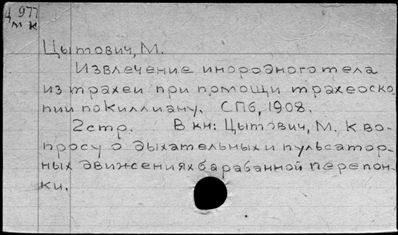 4 977
м к
Цытович, М.
Извлечение инородного тела
из трахеи при помощи трахеоско
пии по Киллиану. СПб, 1908.
2стр. В кн: Цытович, М. К во-
просу о дыхательных и пульсатор-
ных движениях барабанной перепон-
ки.